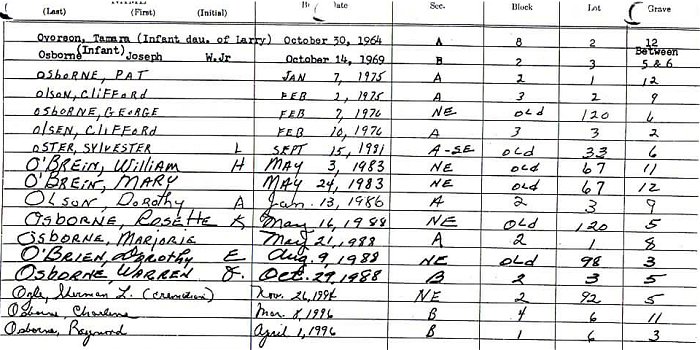 (Last) (First) (Initial) Date Sec. Block Lot Grave
Overson, Tamara (Infant dau. of Larry) October 30, 1964 A 8 2 12
Osborne, (Infant) Joseph W.Jr October 14, 1969 B 2 3 Between 5 & 6
OSBORNE, PAT JAN 7, 1975 A 2 1 12
Olson, CLIFFORD FEB 2, 1975 A 3 2 9
OSBORNE, GEORGE FEB 7, 1976 NE OLd 120 6
OLSEN, CLIFFORD FEB 10, 1976 A 3 3 2
OSTER, SYLVESTER L SEPT 15, 1981 A-SE OLd 33 6
O'BREIN, William H MAY 3, 1983 NE OLd 67 11
O'BREIN, MARY MAY 24, 1983 NE OLd 67 12
OLSON, Dorothy A Jan. 13, 1986 A 2 3 9
OSBORNE, ROSETTE K May 16, 1988 NE OLd 120 5
OSBORNE, MARJORIE May 21, 1988 A 2 1 8
O'BRIEN, Dorothy E Aug. 9, 1988 NE OLd 98 3
OSBORNE, WARREN F. Oct. 29, 1988 B 2 3 5
Ogle, Sherman L. (cremation) Nov. 26, 1994 NE 2 92 5
Osborne, Charlene Mar. 8, 1996 B 4 6 11
Osborne, Raymond April 1, 1996 B 1 6 3